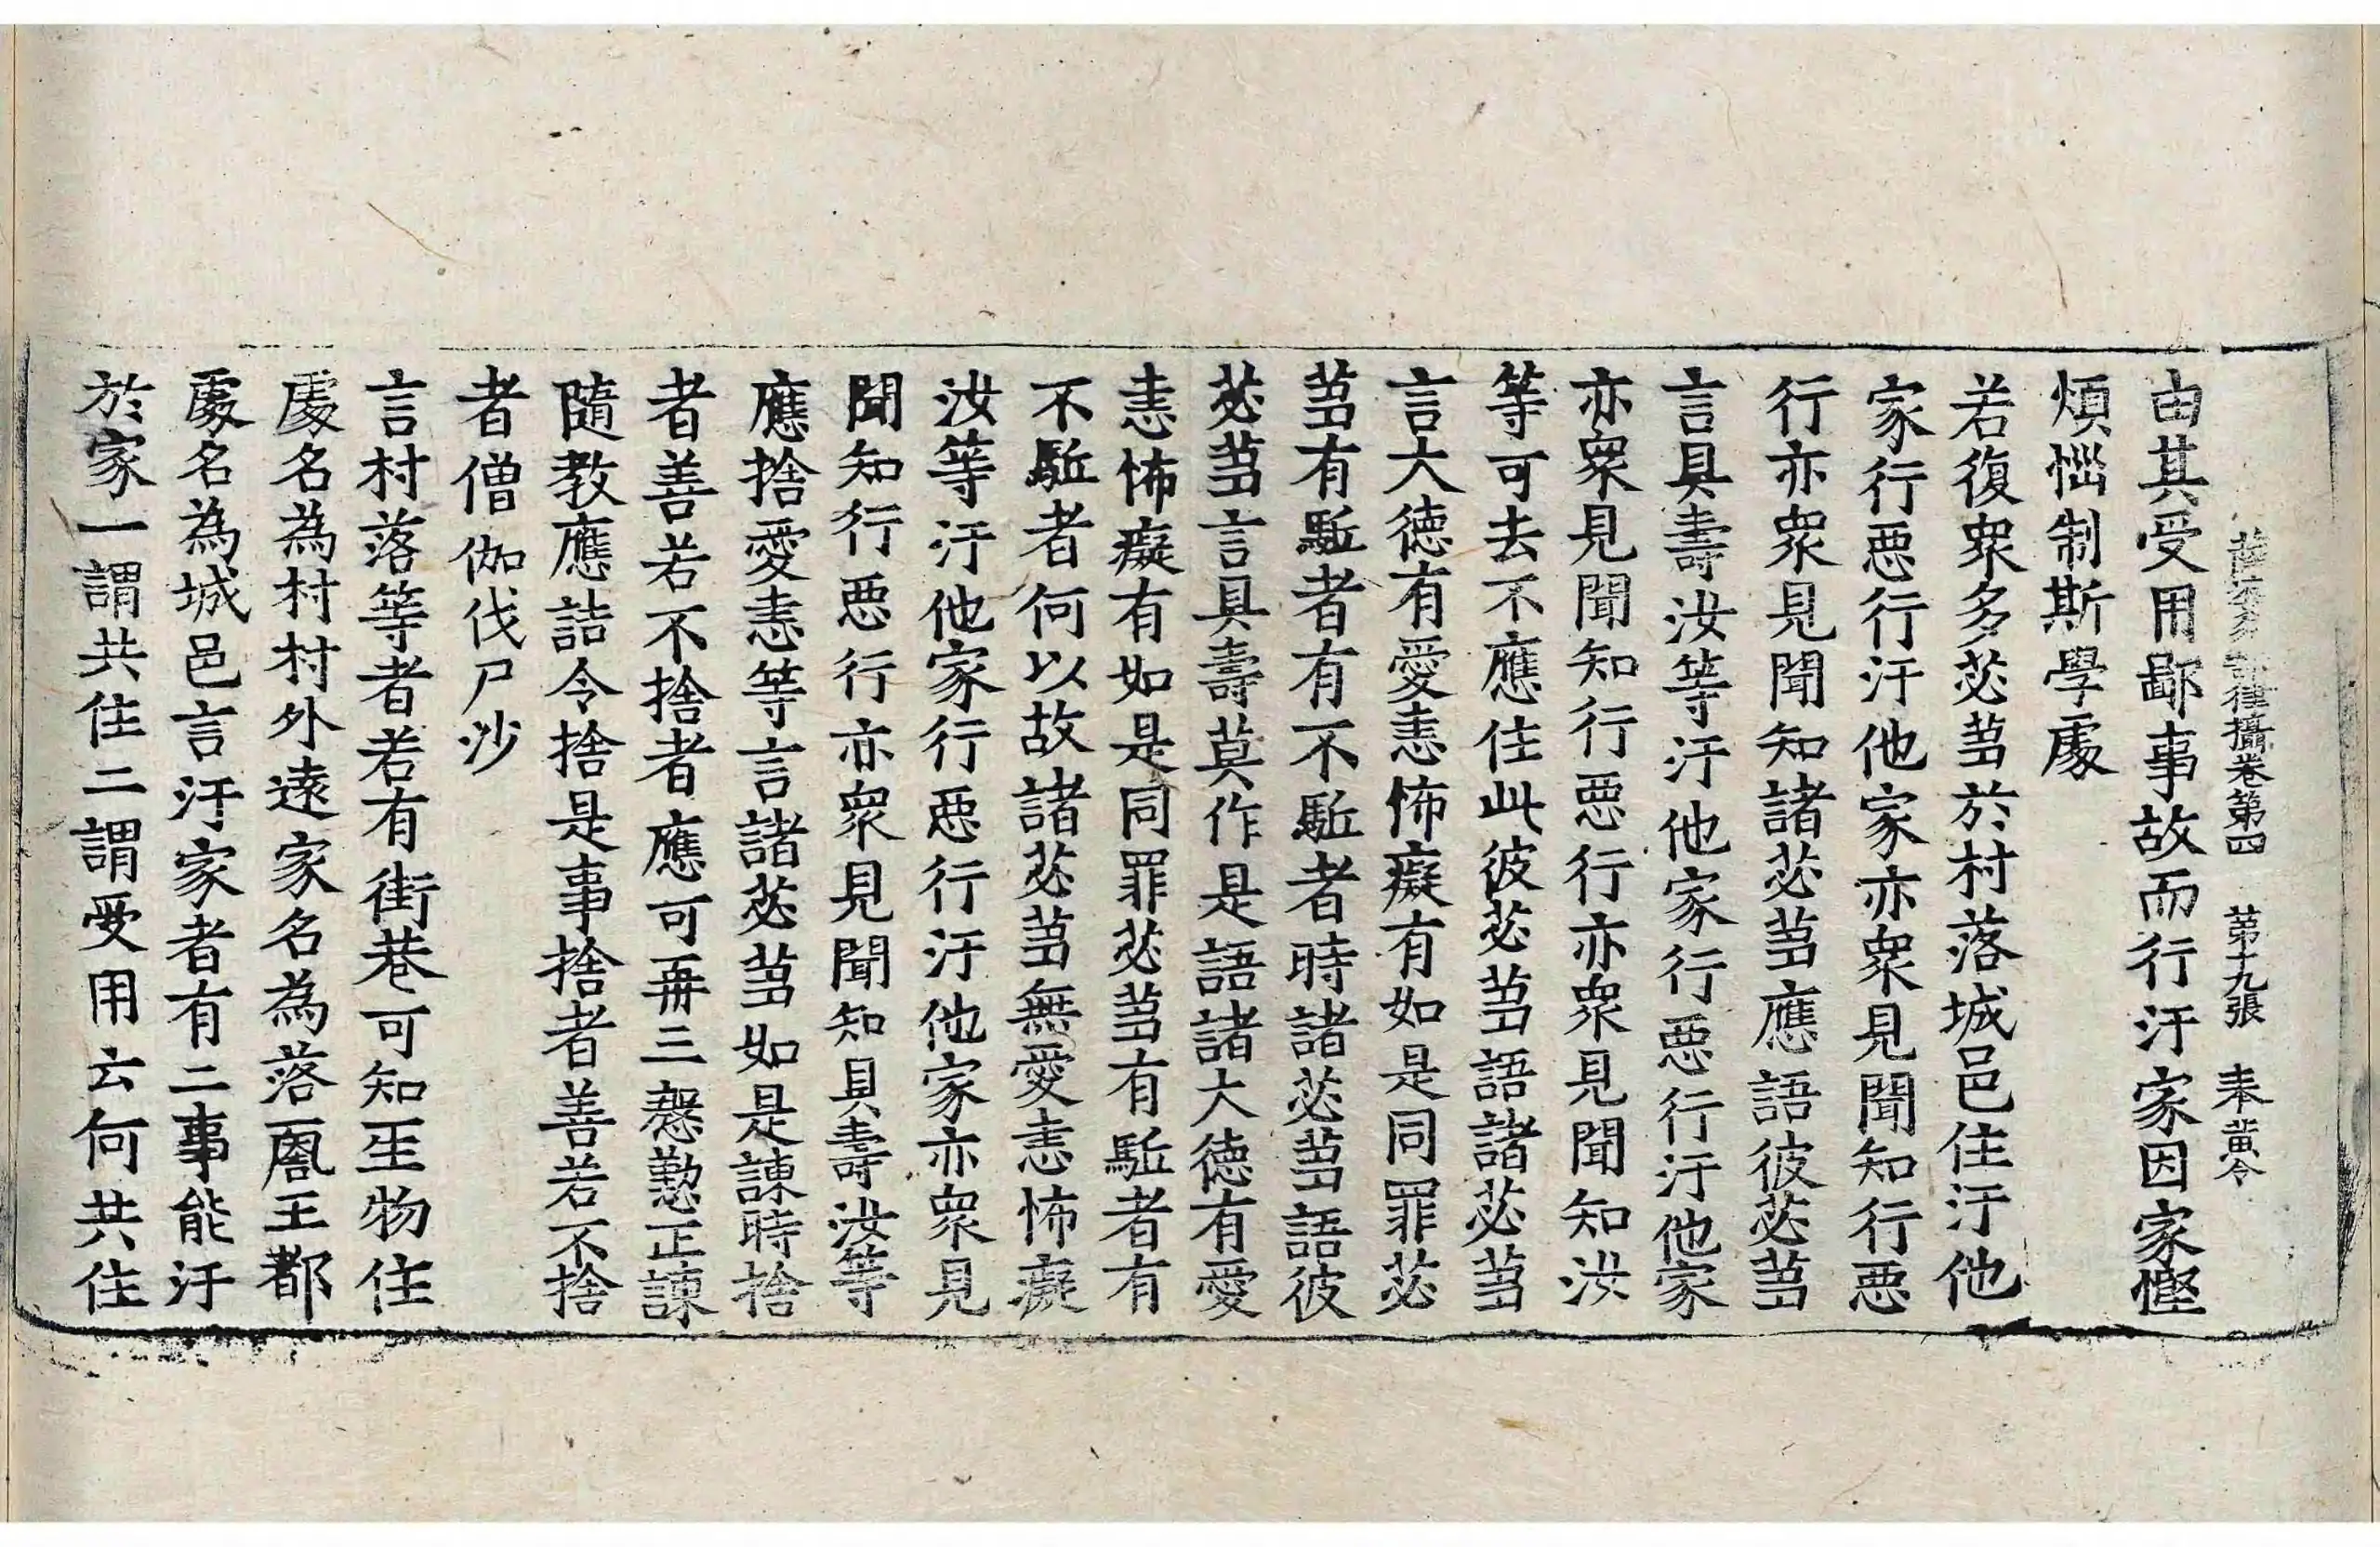 薩婆多部律攝卷第四 第十九張 奉黃令
由其受用鄙事故而行汙家因家慳
煩惱制斯學處
若復衆多苾芻於村落城邑住汙他
家行惡行汙他家亦衆見聞知行惡
行亦衆見聞知諸苾芻應語彼苾芻
言具壽汝等汙他家行惡行汙他家
亦衆見聞知行惡行亦衆見聞知汝
等可去不應住此彼苾芻語諸苾芻
言大德有愛恚怖癡有如是同罪苾
芻有駈者有不駈者時諸苾芻語彼
苾芻言具壽莫作是語諸大德有愛
恚怖癡有如是同罪苾芻有駈者有
不駈者何以故諸苾芻無愛恚怖癡
汝等汙他家行惡行汙他家亦衆見
聞知行惡行亦衆見聞知具壽汝等
應捨愛恚等言諸苾芻如是諫時捨
者善若不捨者應可再三慇懃正諫
隨教應詰令捨是事捨者善若不捨
者僧伽伐尸沙
言村落等者若有街巷可知生物住
處名為村村外遠家名為落圂王都
處名為城邑言汙家者有二事能汙
於家一謂共住二謂受用云何共住